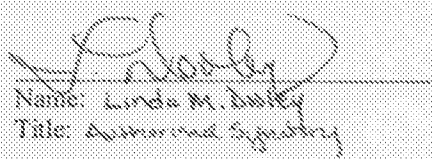 Name: Linda M.
Title: Authorized Signatory